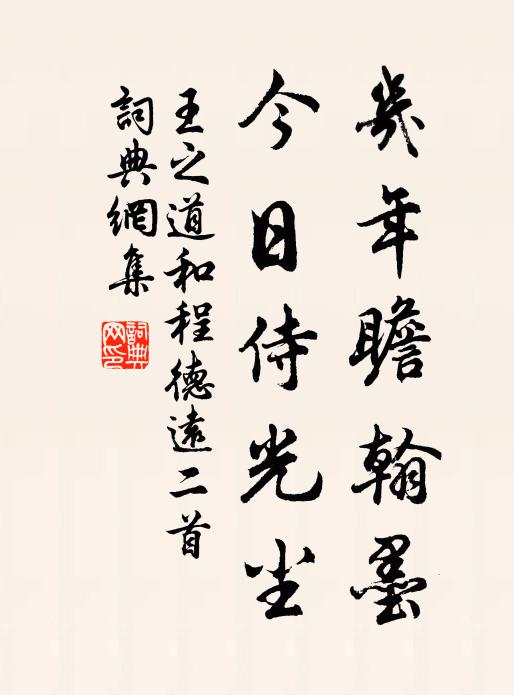 幾年瞻翰墨
今日侍光尘
王之道和程德遠二首
詞典網集
詞典网印